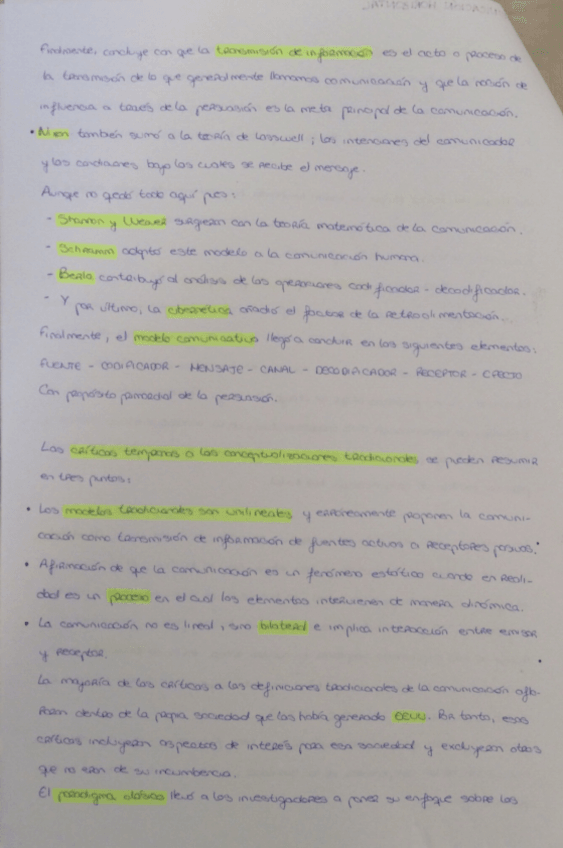 Finalmente, concluye con que la transmisión de información es el acto o proceso de
la transmisión de lo que generalmente llamamos comunicación y que la noción de
influencia a través de la persuasión es la meta principal de la comunicación.
• también sumó a la teoría de Lasswell; las intenciones del comunicador
y las condiciones bajo las cuales se recibe el mensaje.
Aunque no quedó todo aquí pues:
- Shannon y Weaver surgieron con la teoría matemática de la comunicación.
- Schramm adaptó este modelo a la comunicación humana.
- Berlo contribuyó al análisis de las operaciones codificador - decodificador.
- Y por último, la cibernética añadió el factor de la retroalimentación.
Finalmente, el modelo comunicativo llegó a concluir en los siguientes elementos:
FUENTE - CODIFICADOR - MENSAJE - CANAL - DECODIFICADOR - RECEPTOR - EFECTO
Con propósito primordial de la persuasión.
Las críticas tempranas a las conceptualizaciones tradicionales se pueden resumir
en tres puntos:
• Los modelos tradicionales son unilineales y erróneamente proponen la comuni-
cación como transmisión de información de fuentes activas a receptores pasivos.
• Afirmación de que la comunicación es un fenómeno estático cuando en reali-
dad es un proceso en el cual los elementos intervienen de manera dinámica.
• La comunicación no es lineal, sino bilateral e implica interacción entre emisor
y receptor.
La mayoría de las críticas a las definiciones tradicionales de la comunicación aflo-
raron dentro de la propia sociedad que las había generado EEUU. Por tanto, esas
críticas incluyeron aspectos de interés para esa sociedad y excluyeron otros
que no eran de su incumbencia.
El paradigma clásico llevó a los investigadores a poner su enfoque sobre los